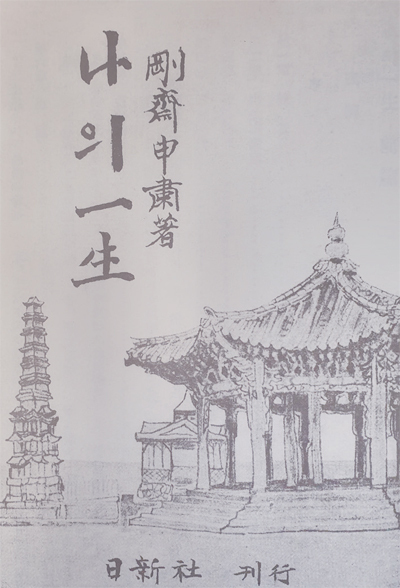 剛齋申肅著
나의一生
日新社 刊行